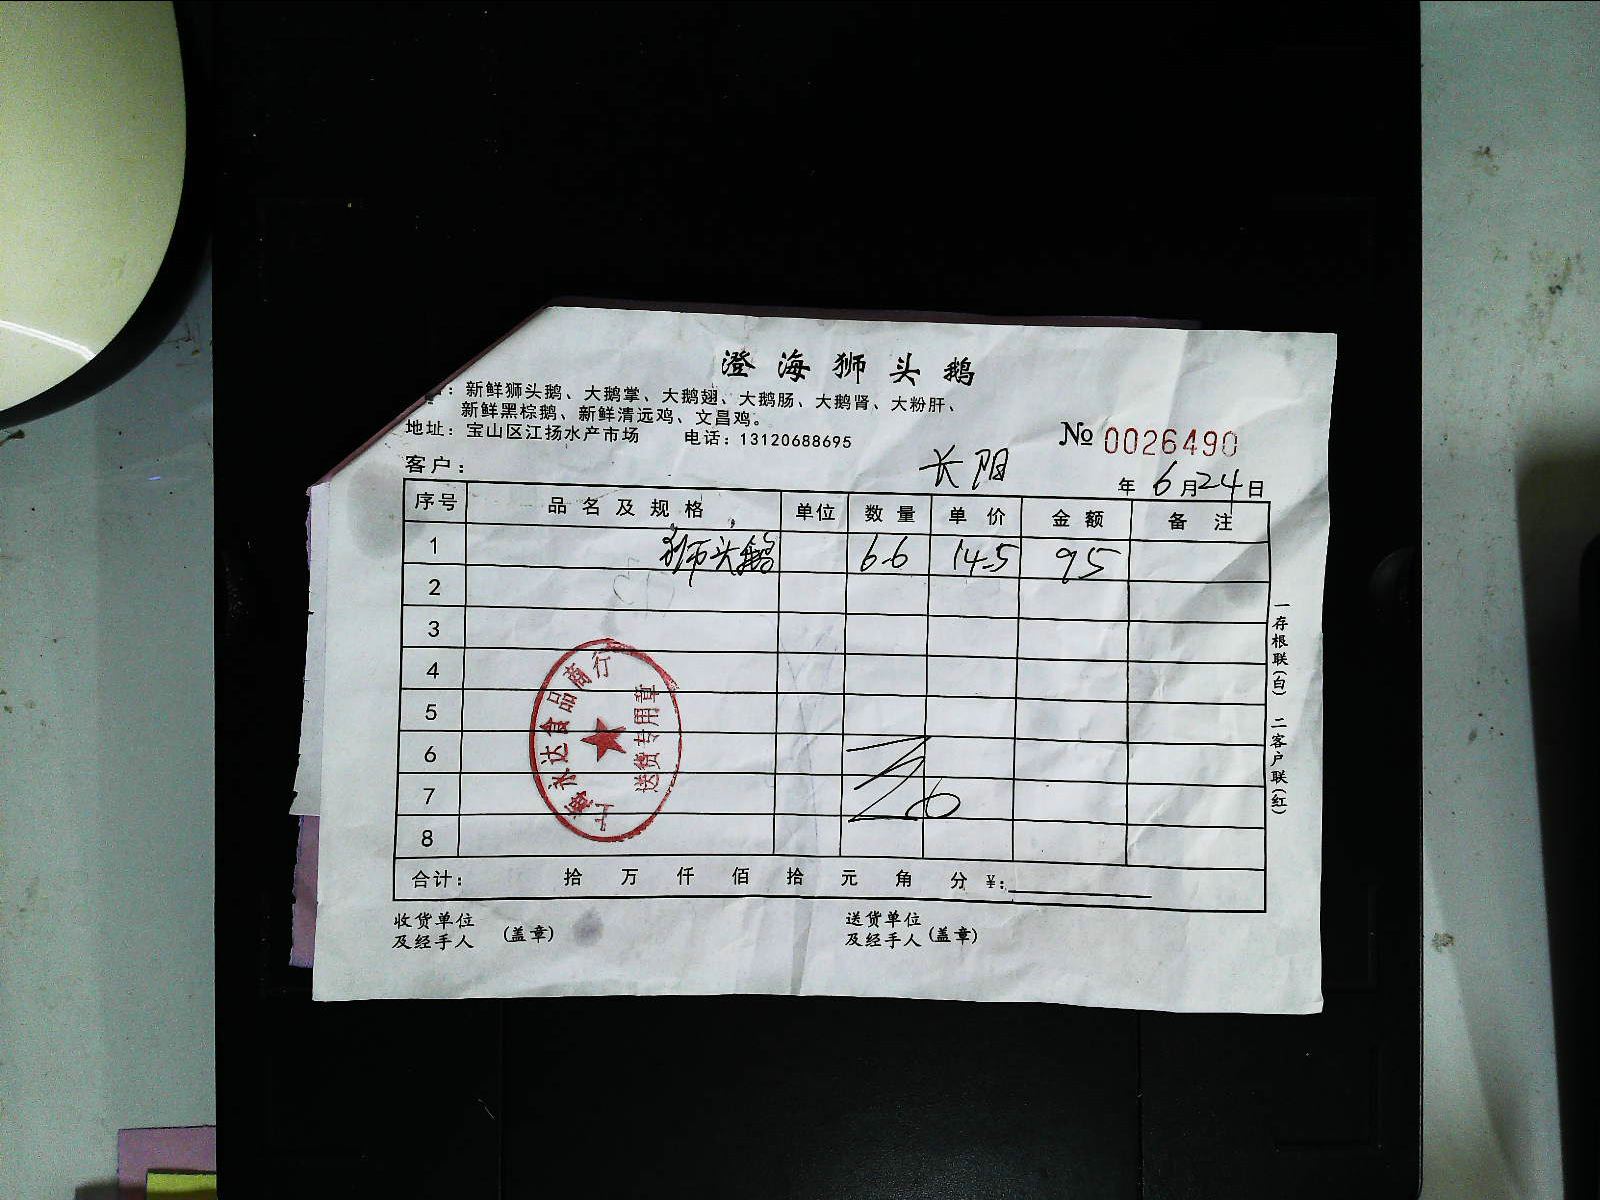 澄海狮头鹅
：新鲜狮头鹅、大鹅掌、大鹅翅、大鹅肠、大鹅肾、大粉肝、
新鲜黑棕鹅、新鲜清远鸡、文昌鸡。
地址：宝山区江扬水产市场 电话：13120688695
№ 0026490
客户： 长阳 年 6月24日
序号 品名及规格 单位 数量 单价 金额 备注
1 狮头鹅 6.6 14.5 95
2
3
4
5
6
7
8
上海永达食品商行
送货专用章
合计： 拾 万 仟 佰 拾 元 角 分 ¥:
收货单位
及经手人 (盖章)
送货单位
及经手人 (盖章)
一存根联(白) 二客户联(红)